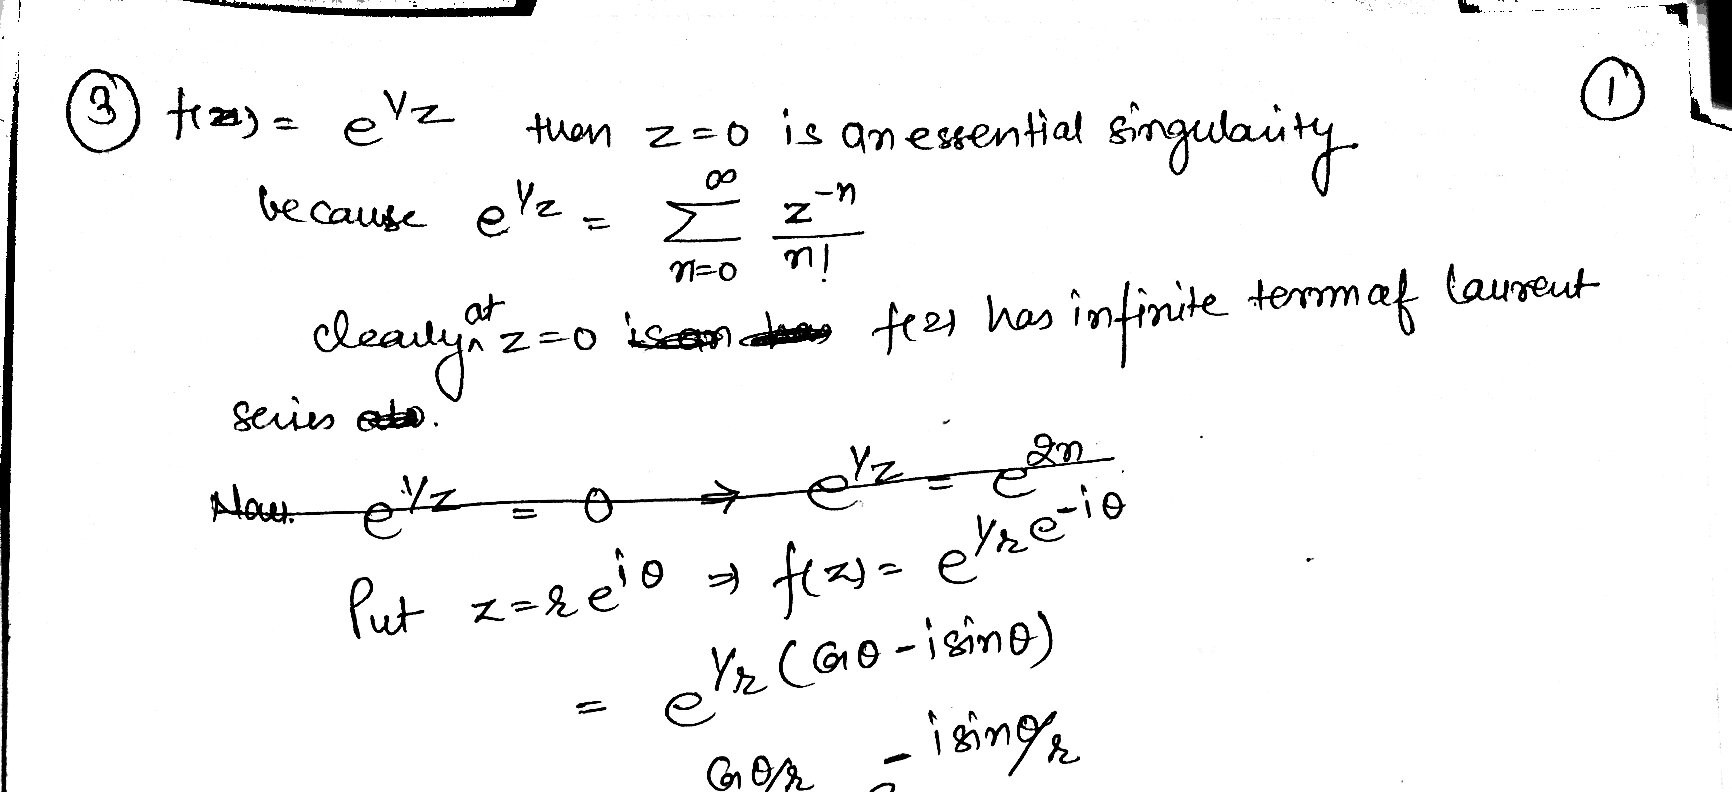 ③ f(z) = e^{1/z} then z=0 is an essential singularity ①
because e^{1/z} = \sum_{n=0}^{∞} \frac{z^{-n}}{n!}
clearly at z=0 f(z) has infinite term of laurent
series.
Now. e^{1/z} = 0 ⇒ e^{1/z} = e^{2n}
Put z=re^{iθ} ⇒ f(z) = e^{1/r e^{-iθ}}
= e^{1/r (cosθ - i sinθ)}
cosθ/r - i sinθ/r